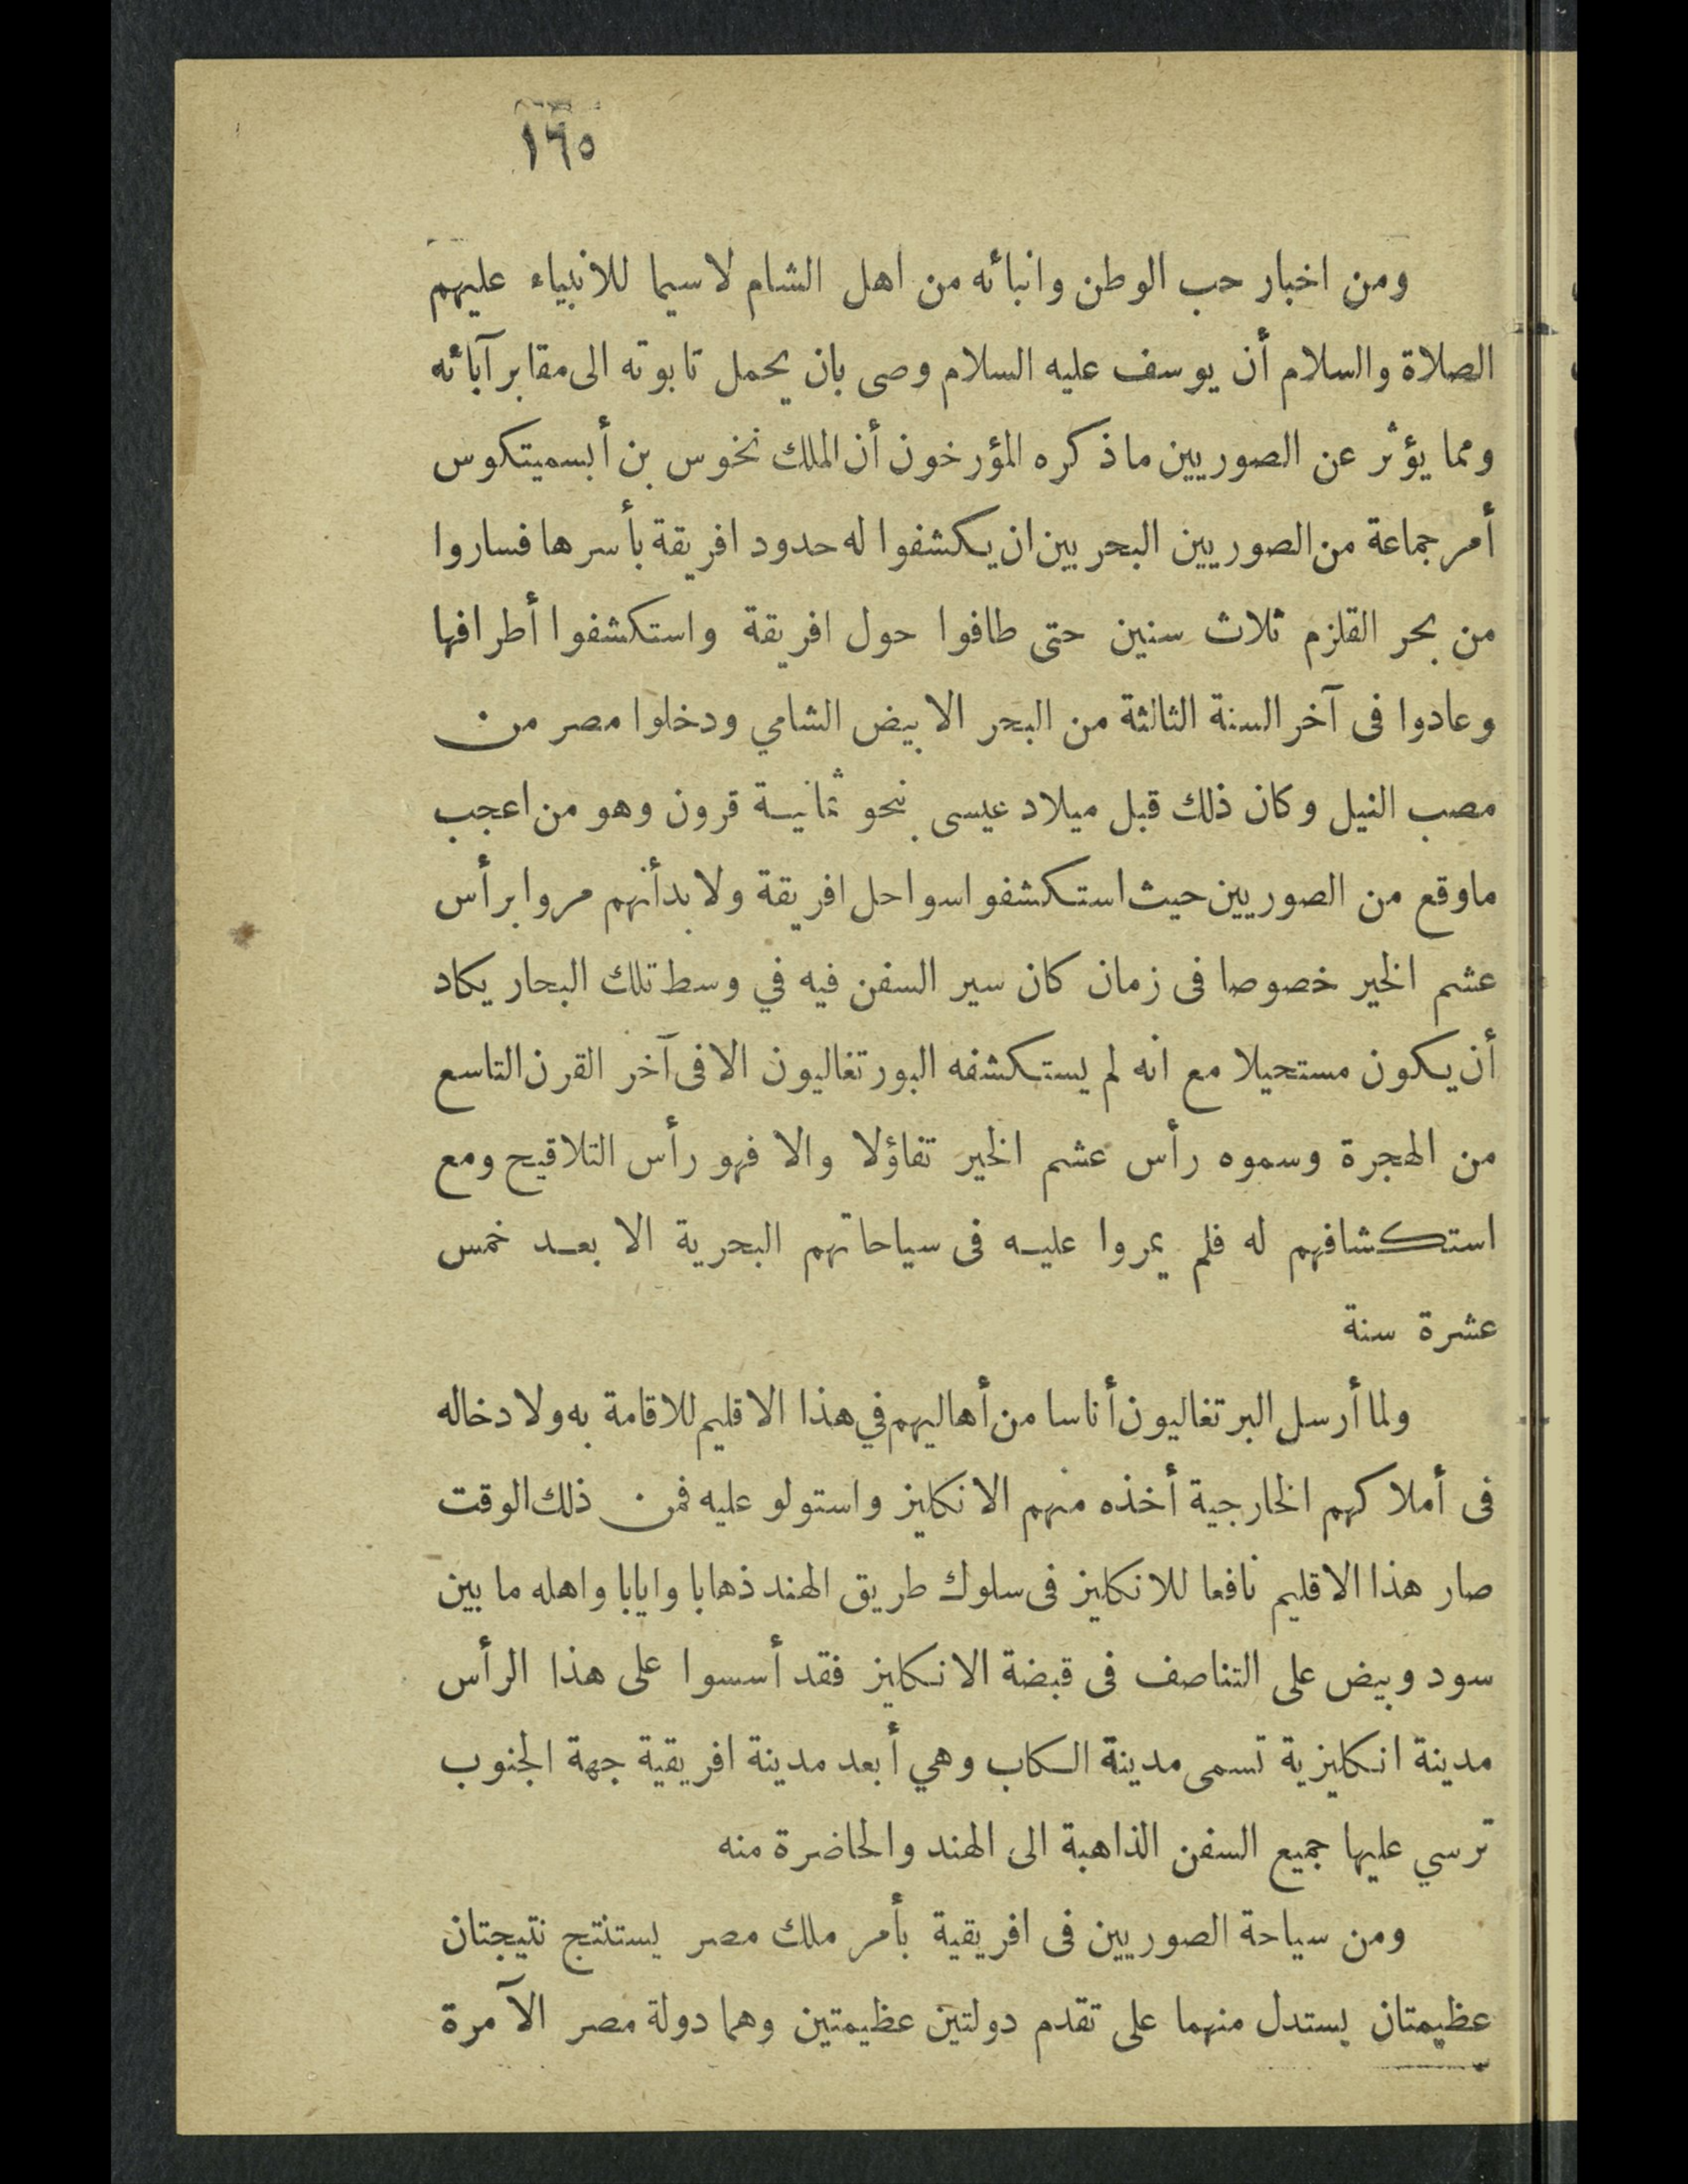 ١٦٥
ومن اخبار حب الوطن وانبائه من اهل الشام لاسيما للانبياء عليهم
الصلاة والسلام أن يوسف عليه السلام وصى بان يحمل تابوته الى مقابر آبائه
ومما يؤثر عن الصوريين ماذكره المؤرخون أن الملك نخوس بن أبسميتكوس
أمر جماعة من الصوريين البحريين ان يكشفوا له حدود افريقة بأسرها فساروا
من بحر القلزم ثلاث سنين حتى طافوا حول افريقة واستكشفوا أطرافها
وعادوا فى آخر السنة الثالثة من البحر الابيض الشامي ودخلوا مصر من
مصب النيل وكان ذلك قبل ميلاد عيسى بنحو ثمانية قرون وهو من اعجب
ماوقع من الصوريين حيث استكشفوا سواحل افريقة ولا بد أنهم مروا برأس
عشم الخير خصوصا فى زمان كان سير السفن فيه في وسط تلك البحار يكاد
أن يكون مستحيلا مع انه لم يستكشفه البورتغاليون الا فى آخر القرن التاسع
من الهجرة وسموه رأس عشم الخير تفاؤلا والا فهو رأس التلاقيح ومع
استكشافهم له فلم يمروا عليه فى سياحاتهم البحرية الا بعد خمس
عشرة سنة
ولما أرسل البرتغاليون أناسا من أهاليهم في هذا الاقليم للاقامة به ولادخاله
فى أملاكهم الخارجية أخذه منهم الانكليز واستولو عليه فمن ذلك الوقت
صار هذا الاقليم نافعا للانكليز فى سلوك طريق الهند ذهابا وايابا واهله ما بين
سود وبيض على التناصف فى قبضة الانكليز فقد أسسوا على هذا الرأس
مدينة انكليزية تسمى مدينة الكاب وهي أبعد مدينة افريقية جهة الجنوب
ترسي عليها جميع السفن الذاهبة الى الهند والحاضرة منه
ومن سياحة الصوريين فى افريقية بأمر ملك مصر يستنتج نتيجتان
عظيمتان يستدل منهما على تقدم دولتين عظيمتين وهما دولة مصر الآمرة